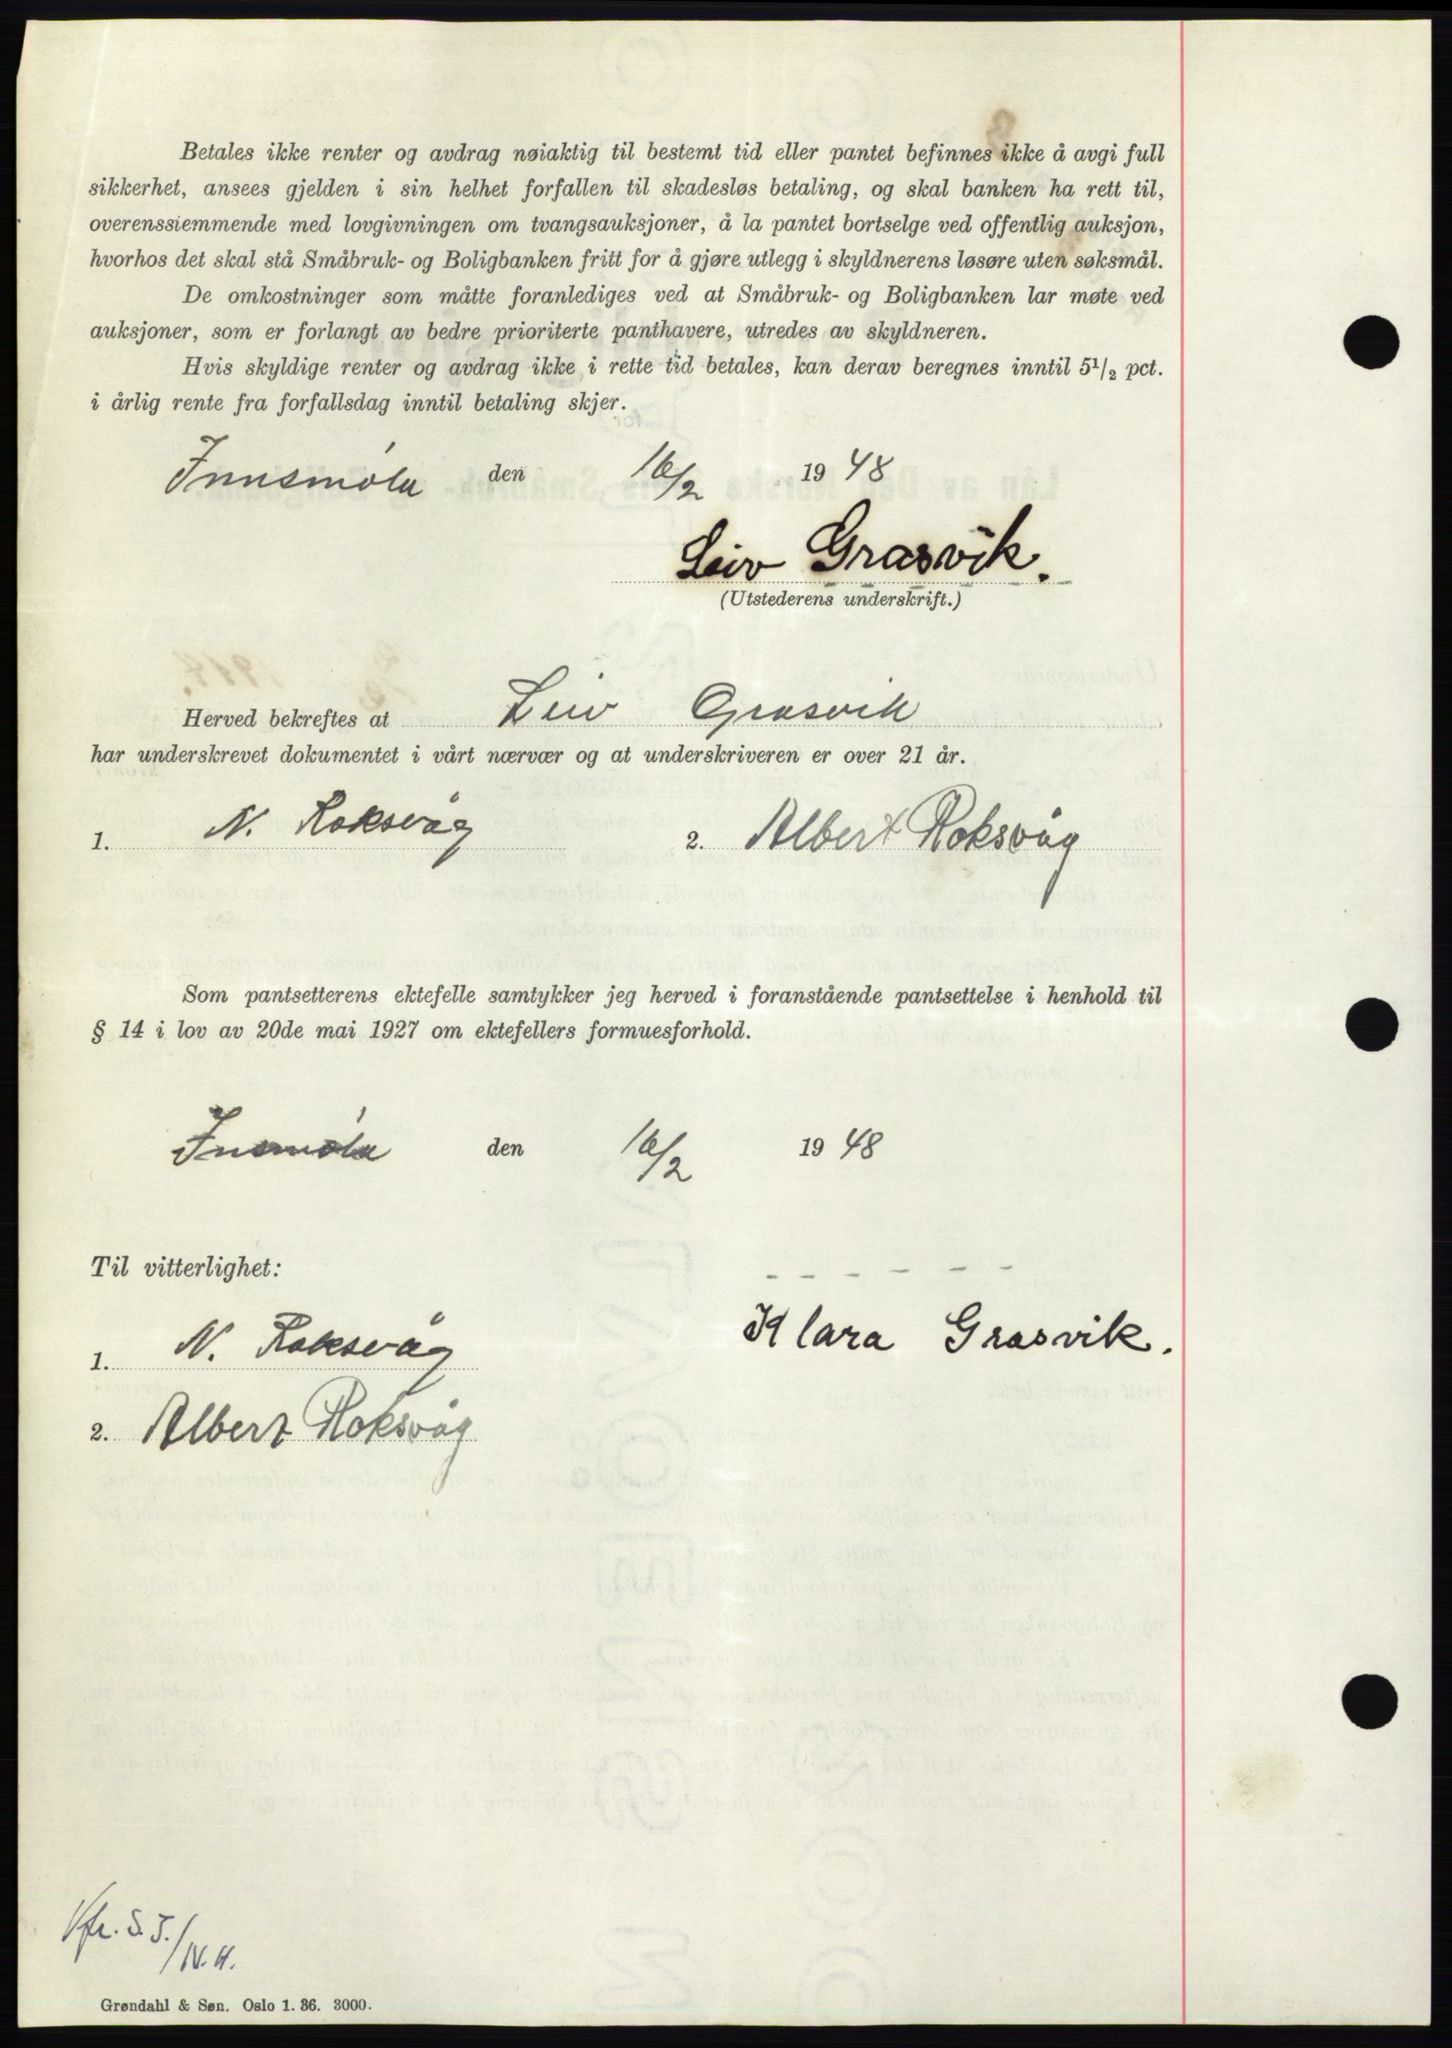 Betales ikke renter og avdrag nøiaktig til bestemt tid eller pantet befinnes ikke å avgi full
sikkerhet, ansees gjelden i sin helhet forfallen til skadesløs betaling, og skal banken ha rett til,
overenssiemmende med lovgivningen om tvangsauksjoner, å la pantet bortselge ved offentlig auksjon,
hvorhos det skal stå Småbruk- og Boligbanken fritt for å gjøre utlegg i skyldnerens løsøre uten søksmål.
De omkostninger som måtte foranlediges ved at Småbruk- og Boligbanken lar møte ved
auksjoner, som er forlangt av bedre prioriterte panthavere, utredes av skyldneren.
Hvis skyldige renter og avdrag ikke i rette tid betales, kan derav beregnes inntil 5 1/2 pct.
i årlig rente fra forfallsdag inntil betaling skjer.
Innsmöla den 16/2 1948
Leiv Grasvik.
(Utstederens underskrift.)
Herved bekreftes at Leiv Grasvik
har underskrevet dokumentet i vårt nærvær og at underskriveren er over 21 år.
1. N. Roksvåg 2. Albert Roksvåg
Som pantsetterens ektefelle samtykker jeg herved i foranstående pantsettelse i henhold til
§ 14 i lov av 20de mai 1927 om ektefellers formuesforhold.
Insmöla den 16/2 1948
Til vitterlighet:
Klara Grasvik.
1. N. Roksvåg
2. Albert Roksvåg
Grøndahl & Søn. Oslo 1. 36. 3000.